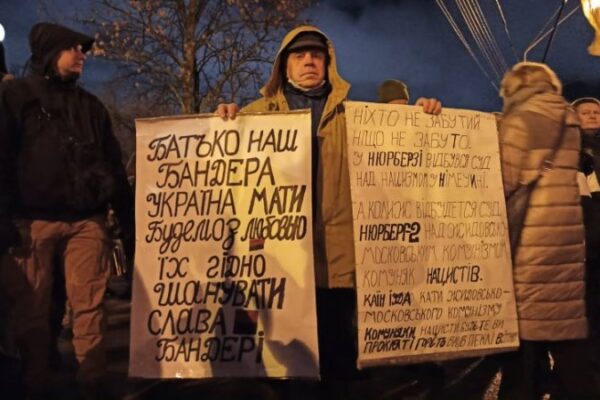 БАТЬКО НАШ
БАНДЕРА
УКРАЇНА МАТИ
БУДЕМО З ЛЮБОВЬЮ
ЇХ ГІДНО
ШАНУВАТИ
СЛАВА
БАНДЕРІ
НІХТО НЕ ЗАБУТИЙ
НІЩО НЕ ЗАБУТО.
У НЮРБЕРЗІ ВІДБУВСЯ СУД
НАД НАЦИЗМОМ У НІМЕЧИНІ.
А КОЛИ ЖЕ ВІДБУДЕТСЯ СУД
НЮРБЕРГ-2 НАД ЖИДОВСЬКО
МОСКОВСЬКИМ КОМУНІЗМОМ
КОМУНЯК НАЦИСТІВ.
КАЇН ІУДА КАТИ ЖИДОВСЬКО-
МОСКОВСЬКОГО КОМУНІЗМУ
КОМУНЯКИ НАЦИСТИ БУДЬТЕ ВИ
ПРОКЛЯТІ ГОРІТЬ В ПЕКЛІ